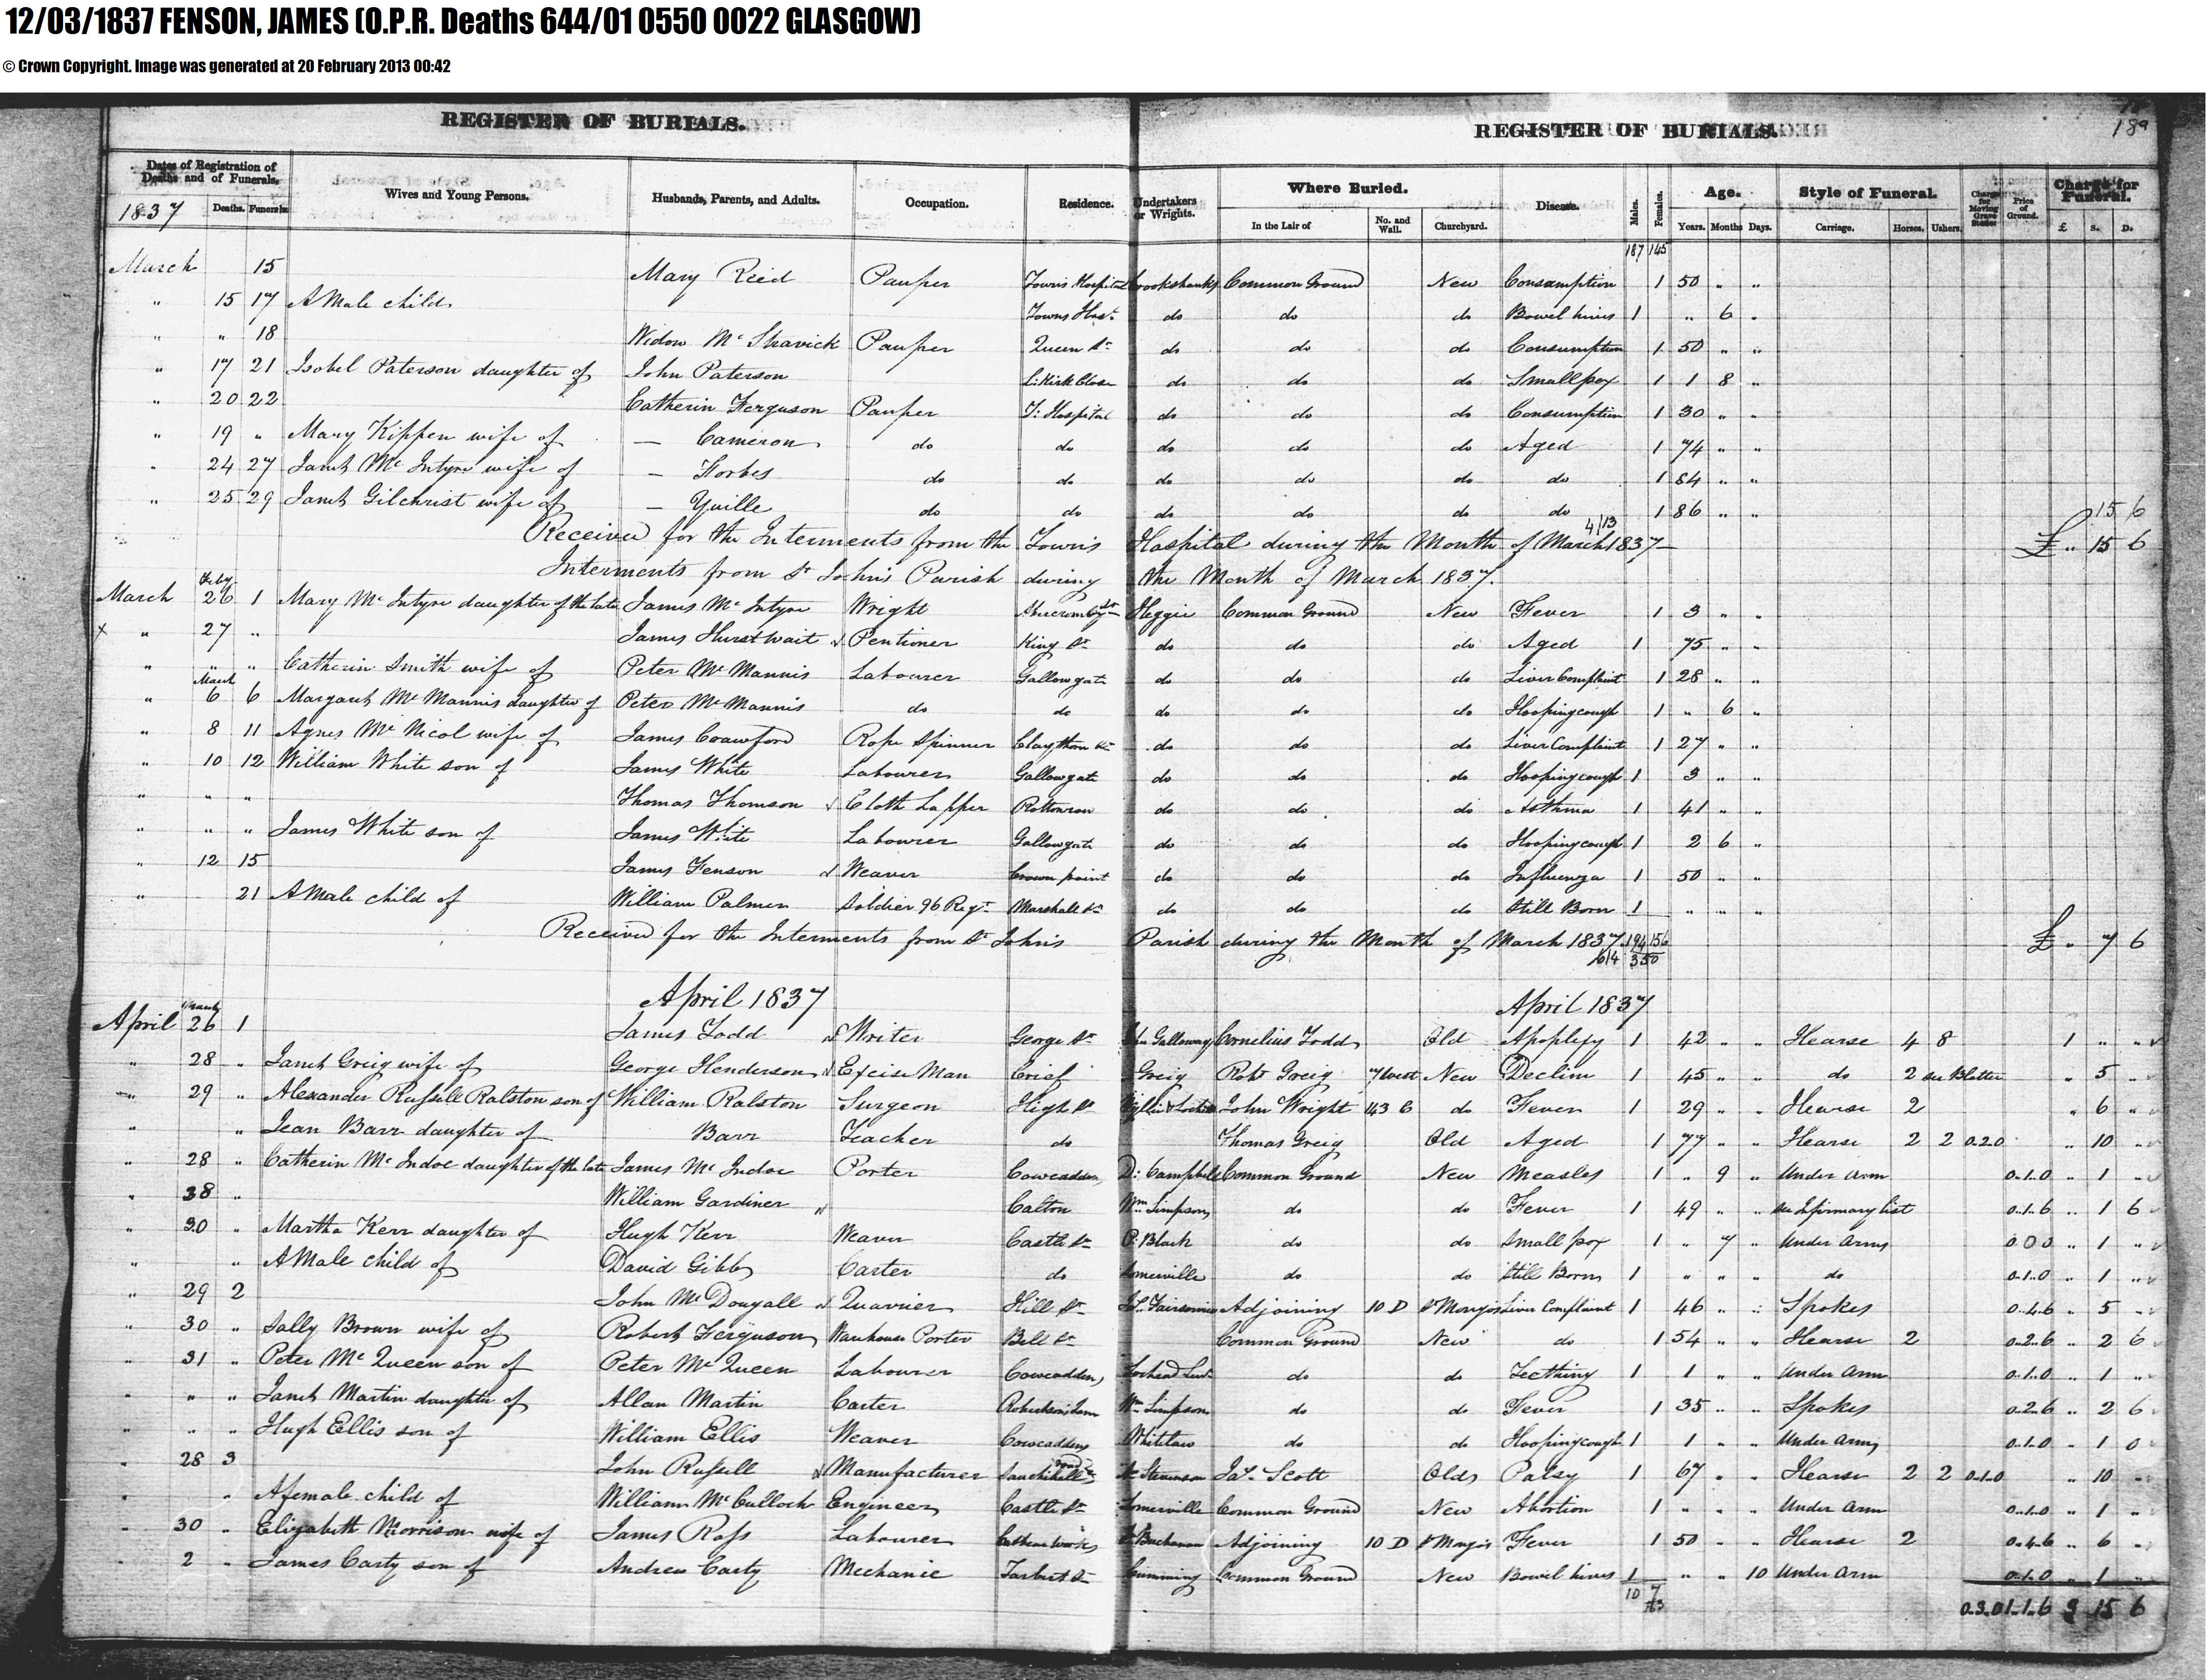 12/03/1837 FENSON, JAMES (O.P.R. Deaths 644/01 0550 0022 GLASGOW)
© Crown Copyright. Image was generated at 20 February 2013 00:42
REGISTER OF BURIALS. REGISTER OF BURIALS. 189
Dates of Registration of Deaths and of Funerals. Wives and Young Persons. Husbands, Parents, and Adults. Occupation. Residence. Undertakers or Wrights. Where Buried. Disease. Males. Females. Age. Style of Funeral. Charge for Moving Grave Stones. Price of Ground. Charge for Funeral.
1837 Deaths. Funerals. In the Lair of No. and Wall. Churchyard. Years. Months Days. Carriage. Horses. Ushers. £ S. D.
187 145
March 15 Mary Reid Pauper Towns Hospital Crookshanks Common Ground New Consumption 1 50 " "
" 15 17 A Male child Towns Hosl. do do do Bowel hives 1 " 6 "
" " 18 Widow Mc Shavick Pauper Queen St do do do Consumption 1 50 " "
" 17 21 Isobel Paterson daughter of John Paterson do do do Small pox 1 1 8 "
" 20 22 Catherin Ferguson Pauper T. Hospital do do do Consumption 1 30 " "
" 19 " Mary Kippen wife of — Cameron do do do do do Aged 1 74 " "
" 24 27 Janet Mc Intyre wife of — Forbes do do do do do do 1 84 " "
" 25 29 Janet Gilchrist wife of — Yuille do do do do do do 1 86 " " 15 6
Received for the Interments from the Towns Hospital during the Month of March 1837 — 4/13 £ " 15 6
Interments from St Johns Parish during the Month of March 1837.
March Feby 26 1 Mary Mc Intyre daughter of the late James Mc Intyre Wright Abercromby St Heggie Common Ground New Fever 1 3 " "
x " 27 " James Hurstwait Pentioner King St do do do Aged 1 75 " "
" " " Catherin Smith wife of Peter Mc Mannis Labourer Gallowgate do do do Liver Complaint 1 28 " "
" March 6 6 Margaret Mc Mannis daughter of Peter Mc Mannis do do do do do Hooping cough 1 " 6 "
" 8 11 Agnes Mc Nicol wife of James Crawford Rope Spinner Claythorn St do do do Liver Complaint 1 27 " "
" 10 12 William White son of James White Labourer Gallowgate do do do Hooping cough 1 3 " "
" " " Thomas Thomson Cloth Lapper Rottonrow do do do Asthma 1 41 " "
" " " James White son of James White Labourer Gallowgate do do do Hooping cough 1 2 6 "
" 12 15 James Fenson Weaver Crown point do do do Influenza 1 50 " "
" 21 A Male child of William Palmer Soldier 96 Regt. Marshall St do do do Still Born 1 " " "
Received for the Interments from St Johns Parish during the Month of March 1837. 194 156 6/4 350 £ " 7 6
April 1837 April 1837
April March 26 1 James Todd Writer George St John Galloway Cornelius Todd Old Apoplexy 1 42 " " Hearse 4 8 1 " "
" 28 " Janet Greig wife of George Henderson Excise Man Crief Greig Robt Greig 7 West New Decline 1 45 " " do 2 see Blotter " 5 "
" 29 " Alexander Russell Ralston son of William Ralston Surgeon High St John Wright 143 C do Fever 1 29 " " Hearse 2 " 6 "
" " Jean Barr daughter of Barr Teacher do Thomas Greig Old Aged 1 77 " " Hearse 2 2 0.2.0 " 10 "
" 28 " Catherin Mc Indoe daughter of the late James Mc Indoe Porter Cowcaddens D. Campbell Common Ground New Measles 1 " 9 " Under Arm 0.1.0 " 1 "
" 28 " William Gardiner Calton Wm Simpson do do Fever 1 49 " " see Infirmary list 0.1.6 " 1 6
" 30 " Martha Kerr daughter of Hugh Kerr Weaver Castle St P. Black do do Small pox 1 " 7 " Under Arms 0 0 0 " 1 "
" " A Male child of David Gibb Carter do Somerville do do Still Born 1 " " " do 0.1.0 " 1 "
" 29 2 John Mc Dougall Quarrier Hill St Adjoining 10 D St Mungos Liver Complaint 1 46 " " Spokes 0.4.6 " 5 "
" 30 " Sally Brown wife of Robert Ferguson Warehouse Porter Bell St Common Ground New do 1 54 " " Hearse 2 0.2.6 " 2 6
" 31 " Peter Mc Queen son of Peter Mc Queen Labourer Cowcaddens do do Teething 1 1 " " Under Arm 0.1.0 " 1 "
" " " Janet Martin daughter of Allan Martin Carter Robertsons Lane Wm Simpson do do Fever 1 35 " " Spokes 0.2.6 " 2 6
" " " Hugh Ellis son of William Ellis Weaver Cowcaddens Whitelaw do do Hooping cough 1 1 " " Under Arm 0.1.0 " 1 0
" 28 3 John Russell Manufacturer Sauchihall Road Stevenson Jas. Scott Old Palsy 1 67 " " Hearse 2 2 0.1.0 " 10 "
" " A female child of William Mc Culloch Engineer Castle St Somerville Common Ground New Abortion 1 " " " Under Arm 0.1.0 " 1 "
" 30 " Elizabeth Morrison wife of James Ross Labourer Buchanan Adjoining 10 D St Mungos Fever 1 50 " " Hearse 2 0.4.6 " 6 "
" 2 " James Carty son of Andrew Carty Mechanic Tarbert St Cumming Common Ground New Bowel hives 1 " " 10 Under Arm 0.1.0 " 1 "
10 7 0.3.0 1.1.6 3 15 6